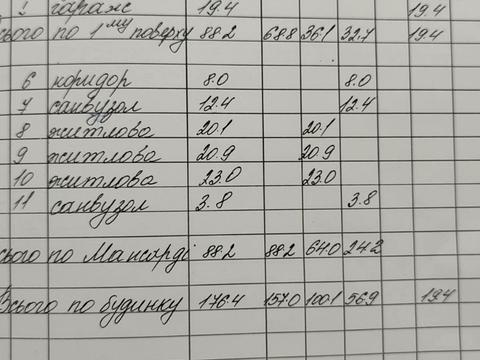 гараж 19.4 19.4
сього по 1му поверху 88.2 68.8 36.1 32.7 19.4
6 коридор 8.0 8.0
7 санвузол 12.4 12.4
8 житлова 20.1 20.1
9 житлова 20.9 20.9
10 житлова 23.0 23.0
11 санвузол 3.8 3.8
сього по Мансарді 88.2 88.2 64.0 24.2
Всього по будинку 176.4 157.0 100.1 56.9 19.4